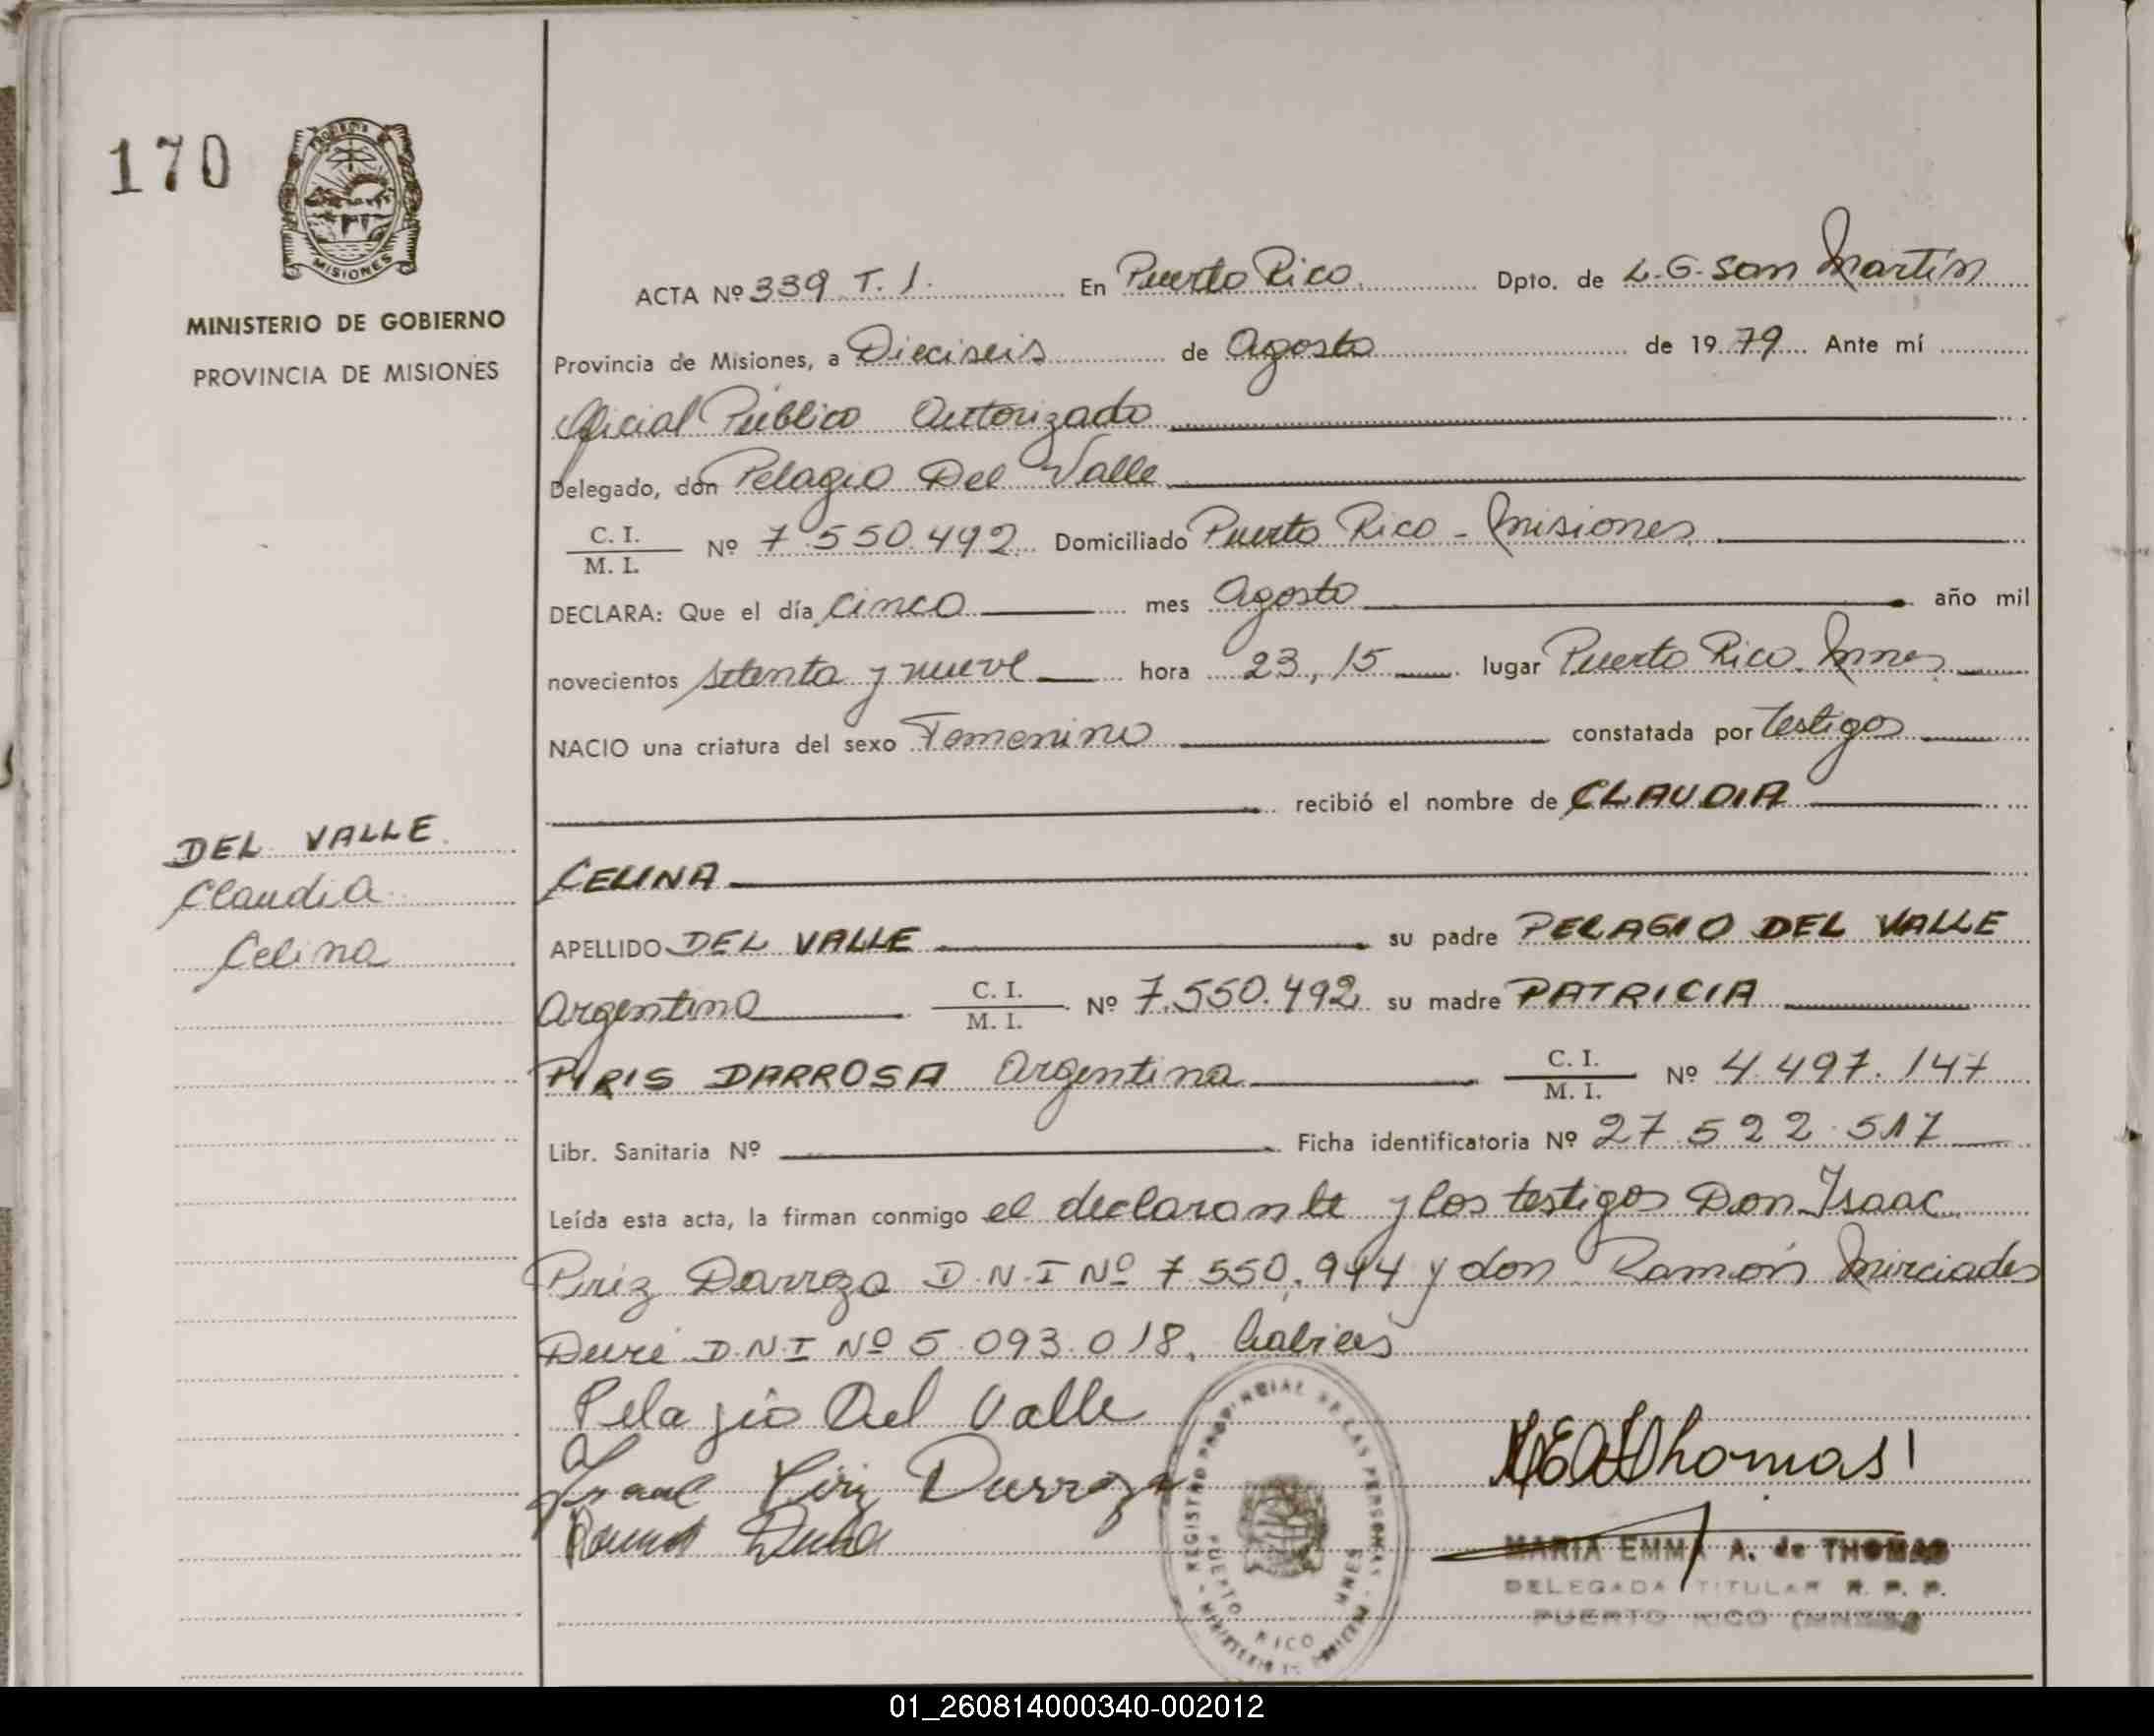 170
MISIONES
MINISTERIO DE GOBIERNO
PROVINCIA DE MISIONES
DEL VALLE
Claudia
Celina
ACTA Nº 339 T. 1. En Puerto Rico Dpto. de L. G. San Martín
Provincia de Misiones, a Dieciseis de Agosto de 1979 Ante mí
Oficial Público Autorizado
Delegado, don Pelagio Del Valle
C. I.
M. I. Nº 7.550.492 Domiciliado Puerto Rico - Misiones
DECLARA: Que el día cinco mes Agosto año mil
novecientos setenta y nueve hora 23,15 lugar Puerto Rico. Mnes
NACIO una criatura del sexo Femenino constatada por testigos
recibió el nombre de CLAUDIA
CELINA
APELLIDO DEL VALLE su padre PELAGIO DEL VALLE
Argentino C. I.
M. I. Nº 7.550.492 su madre PATRICIA
PIRIS DARROSA Argentina C. I.
M. I. Nº 4.497.147
Libr. Sanitaria Nº Ficha identificatoria Nº 27.522.517
Leída esta acta, la firman conmigo el declarante y los testigos Don Isaac
Piriz Darroza D.N.I Nº 7.550.944 y don Ramón Mirciades
Duré D.N.I Nº 5.093.018, habiles
Pelagio Del Valle
Piriz Darroza
REGISTRO PROVINCIAL DE LAS PERSONAS
PUERTO RICO MNES
Thomas
MARIA EMMA A. de THOMAS
DELEGADA TITULAR R. P. P.
PUERTO RICO
01_260814000340-002012